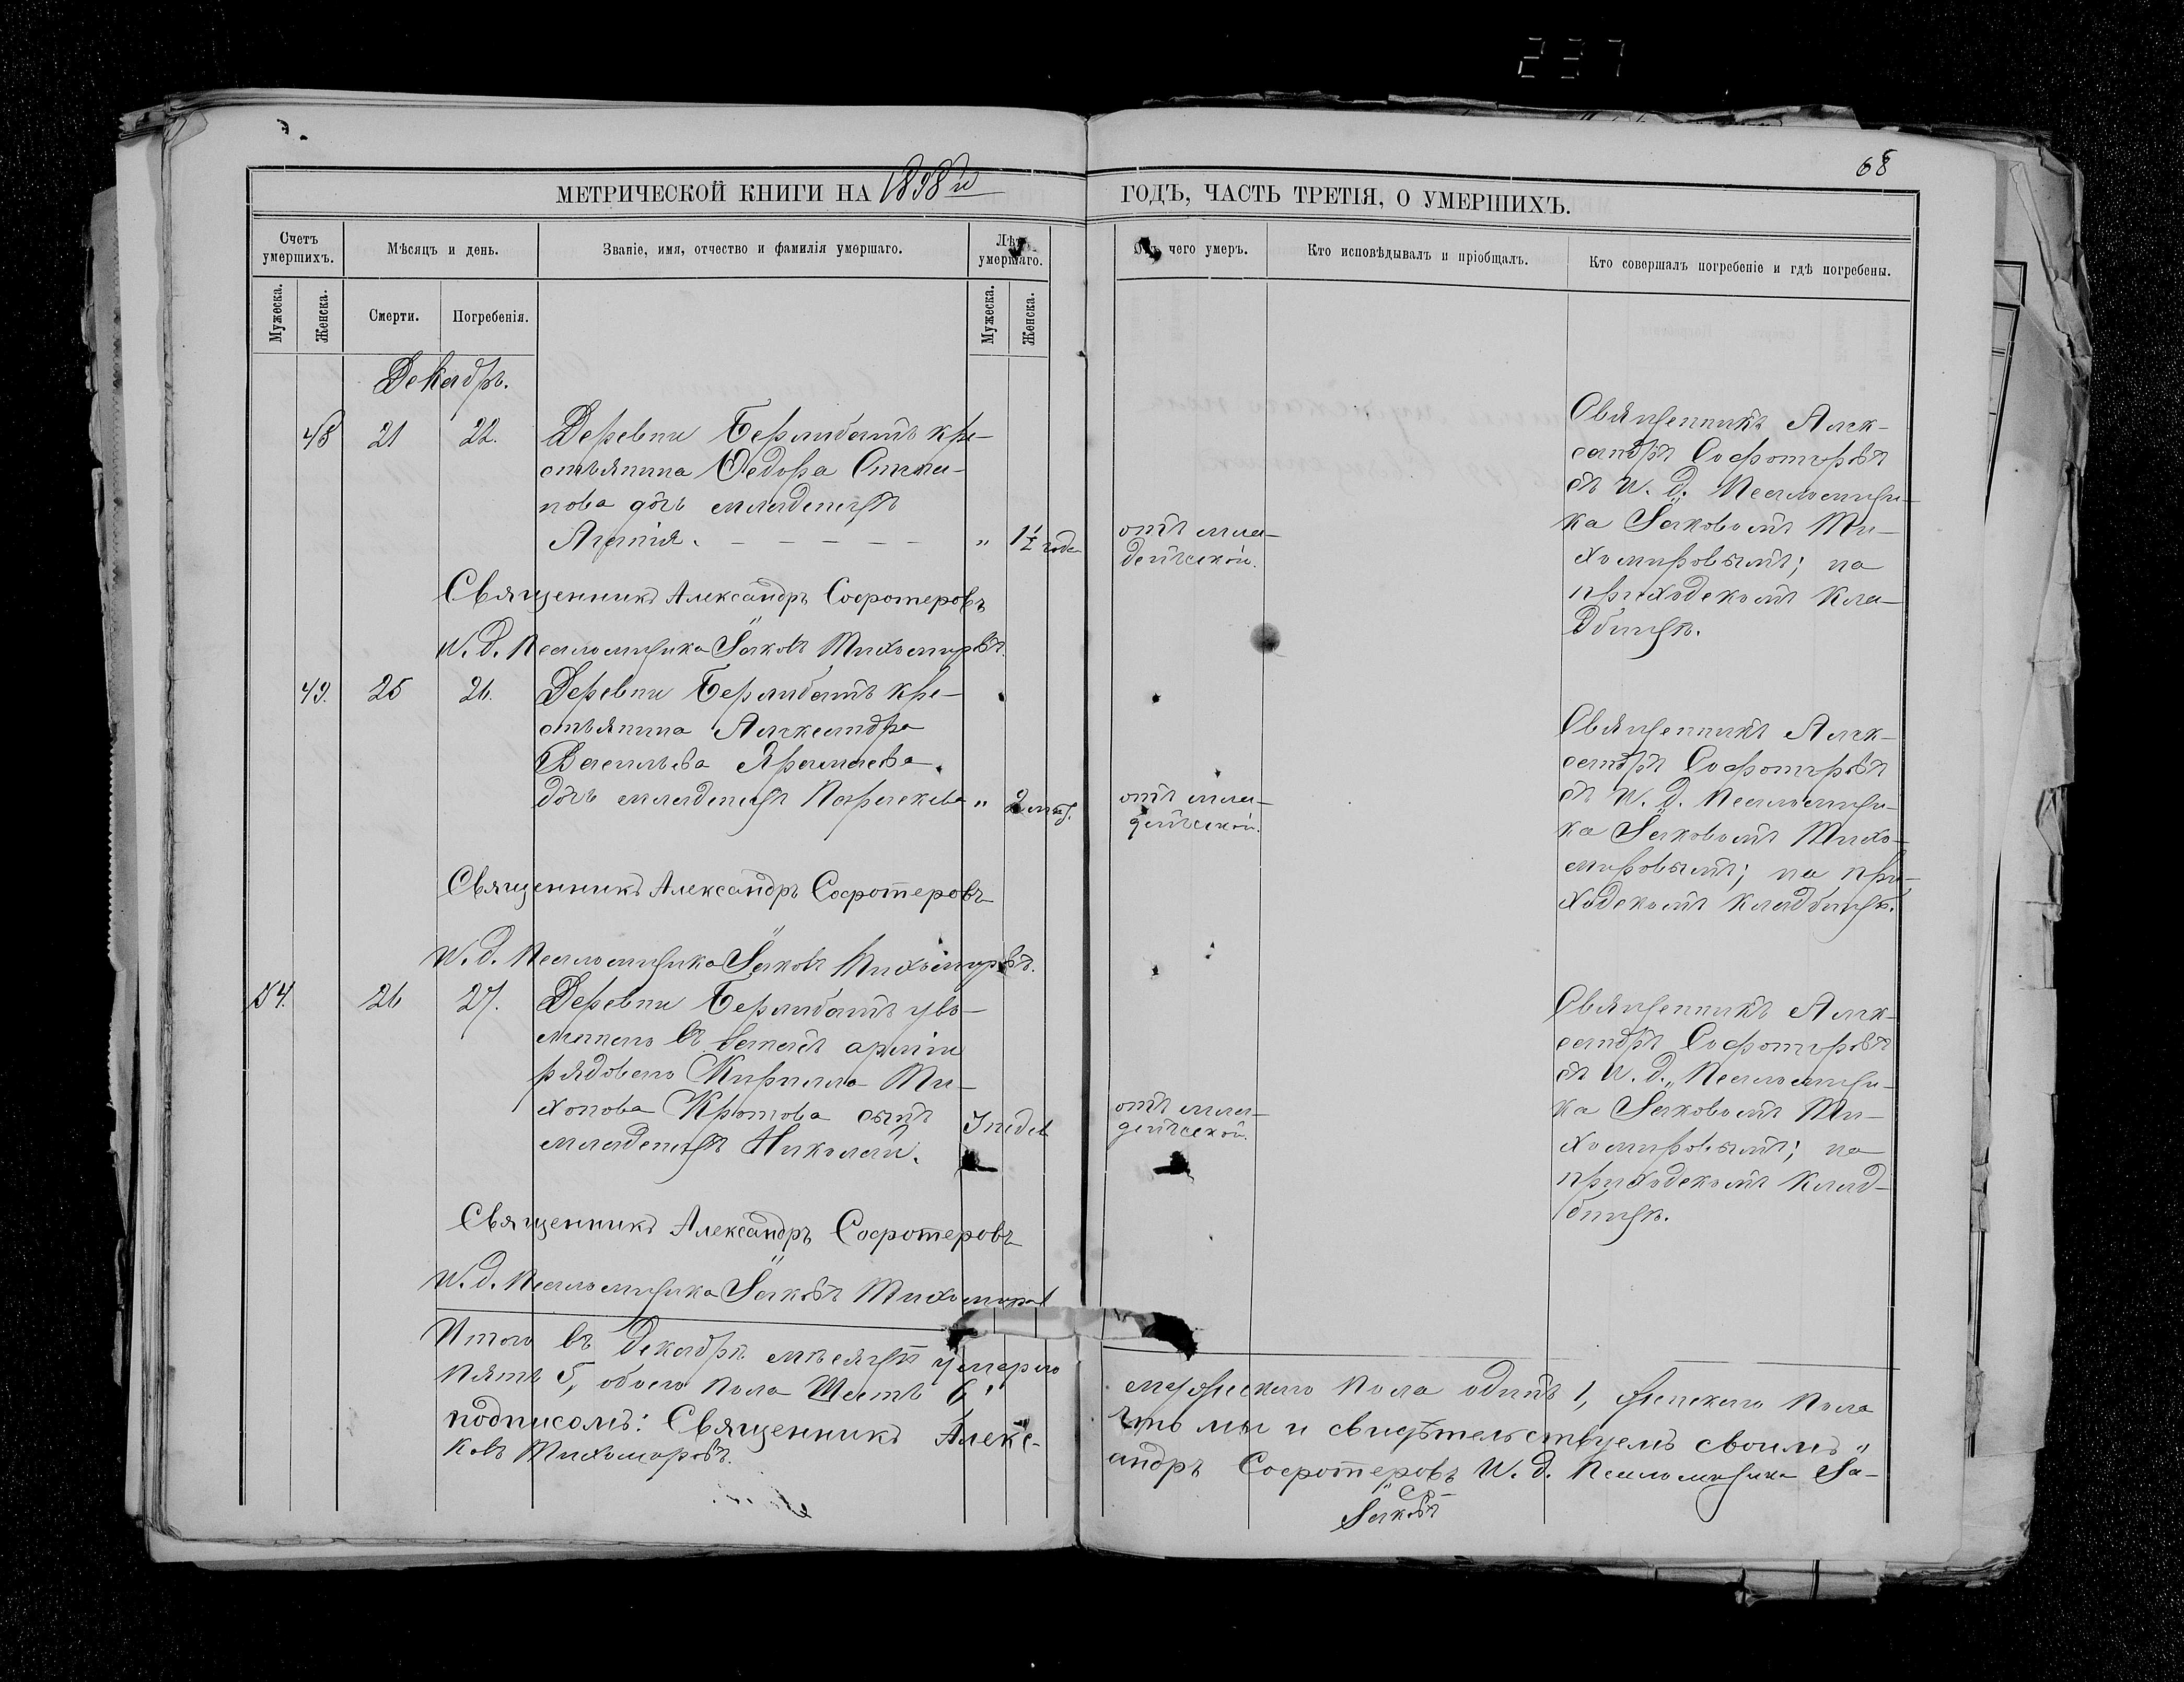 237
68
МЕТРИЧЕСКОЙ КНИГИ НА 1898 й
ГОДЪ, ЧАСТЬ ТРЕТІЯ, О УМЕРШИХЪ.
Счетъ умершихъ.
Мѣсяцъ и день.
Званіе, имя, отчество и фамилія умершаго.
Лѣта умершаго.
Мужеска.
Женска.
Смерти.
Погребенія.
Мужеска.
Женска.
Отъ чего умеръ.
Кто исповѣдывалъ и пріобщалъ.
Кто совершалъ погребеніе и гдѣ погребены.
Декабрь.
48 21 22. Деревни кре-
стьянина Ѳедора Степа-
нова дочь младенецъ
" 1½ года
отъ мла-
денческой.
Священникъ Алек-
сандръ Софотеровъ
съ И. д. Псаломщи-
ка Іаковомъ Ти-
хомировымъ; на
приходскомъ кла-
дбищѣ.
Священникъ Александръ Софотеровъ
И. д. Псаломщика Іаковъ Тихомировъ.
49. 25 26. Деревни кре-
стьянина Александра
Васильева
дочь младенецъ Параскева " 2 мѣс.
отъ мла-
денческой.
Священникъ Алек-
сандръ Софотеровъ
съ И. д. Псаломщи-
ка Іаковомъ Тихо-
мировымъ; на при-
ходскомъ кладбищѣ.
Священникъ Александръ Софотеровъ
И. д. Псаломщика Іаковъ Тихомировъ.
54. 26 27. Деревни уво-
леннаго въ запасъ арміи
рядоваго Кирилла Ти-
хонова Кротова сынъ
младенецъ Николай.
недѣл
отъ мла-
денческой.
Священникъ Алек-
сандръ Софотеровъ
съ И. д. Псаломщи-
ка Іаковомъ Ти-
хомировымъ; на
приходскомъ клад-
бищѣ.
Священникъ Александръ Софотеровъ
И. д. Псаломщика Іаковъ Тихомировъ
Итого въ Декабрѣ мѣсяцѣ умерло
мужескаго пола одинъ 1, женскаго пола
пять 5, обоего пола шесть 6.
что мы и свидѣтельствуемъ своимъ
подписомъ: Священникъ Алекс-
андръ Софотеровъ И. д. Псаломщика Іа-
ковъ Тихомировъ.
Іаковъ